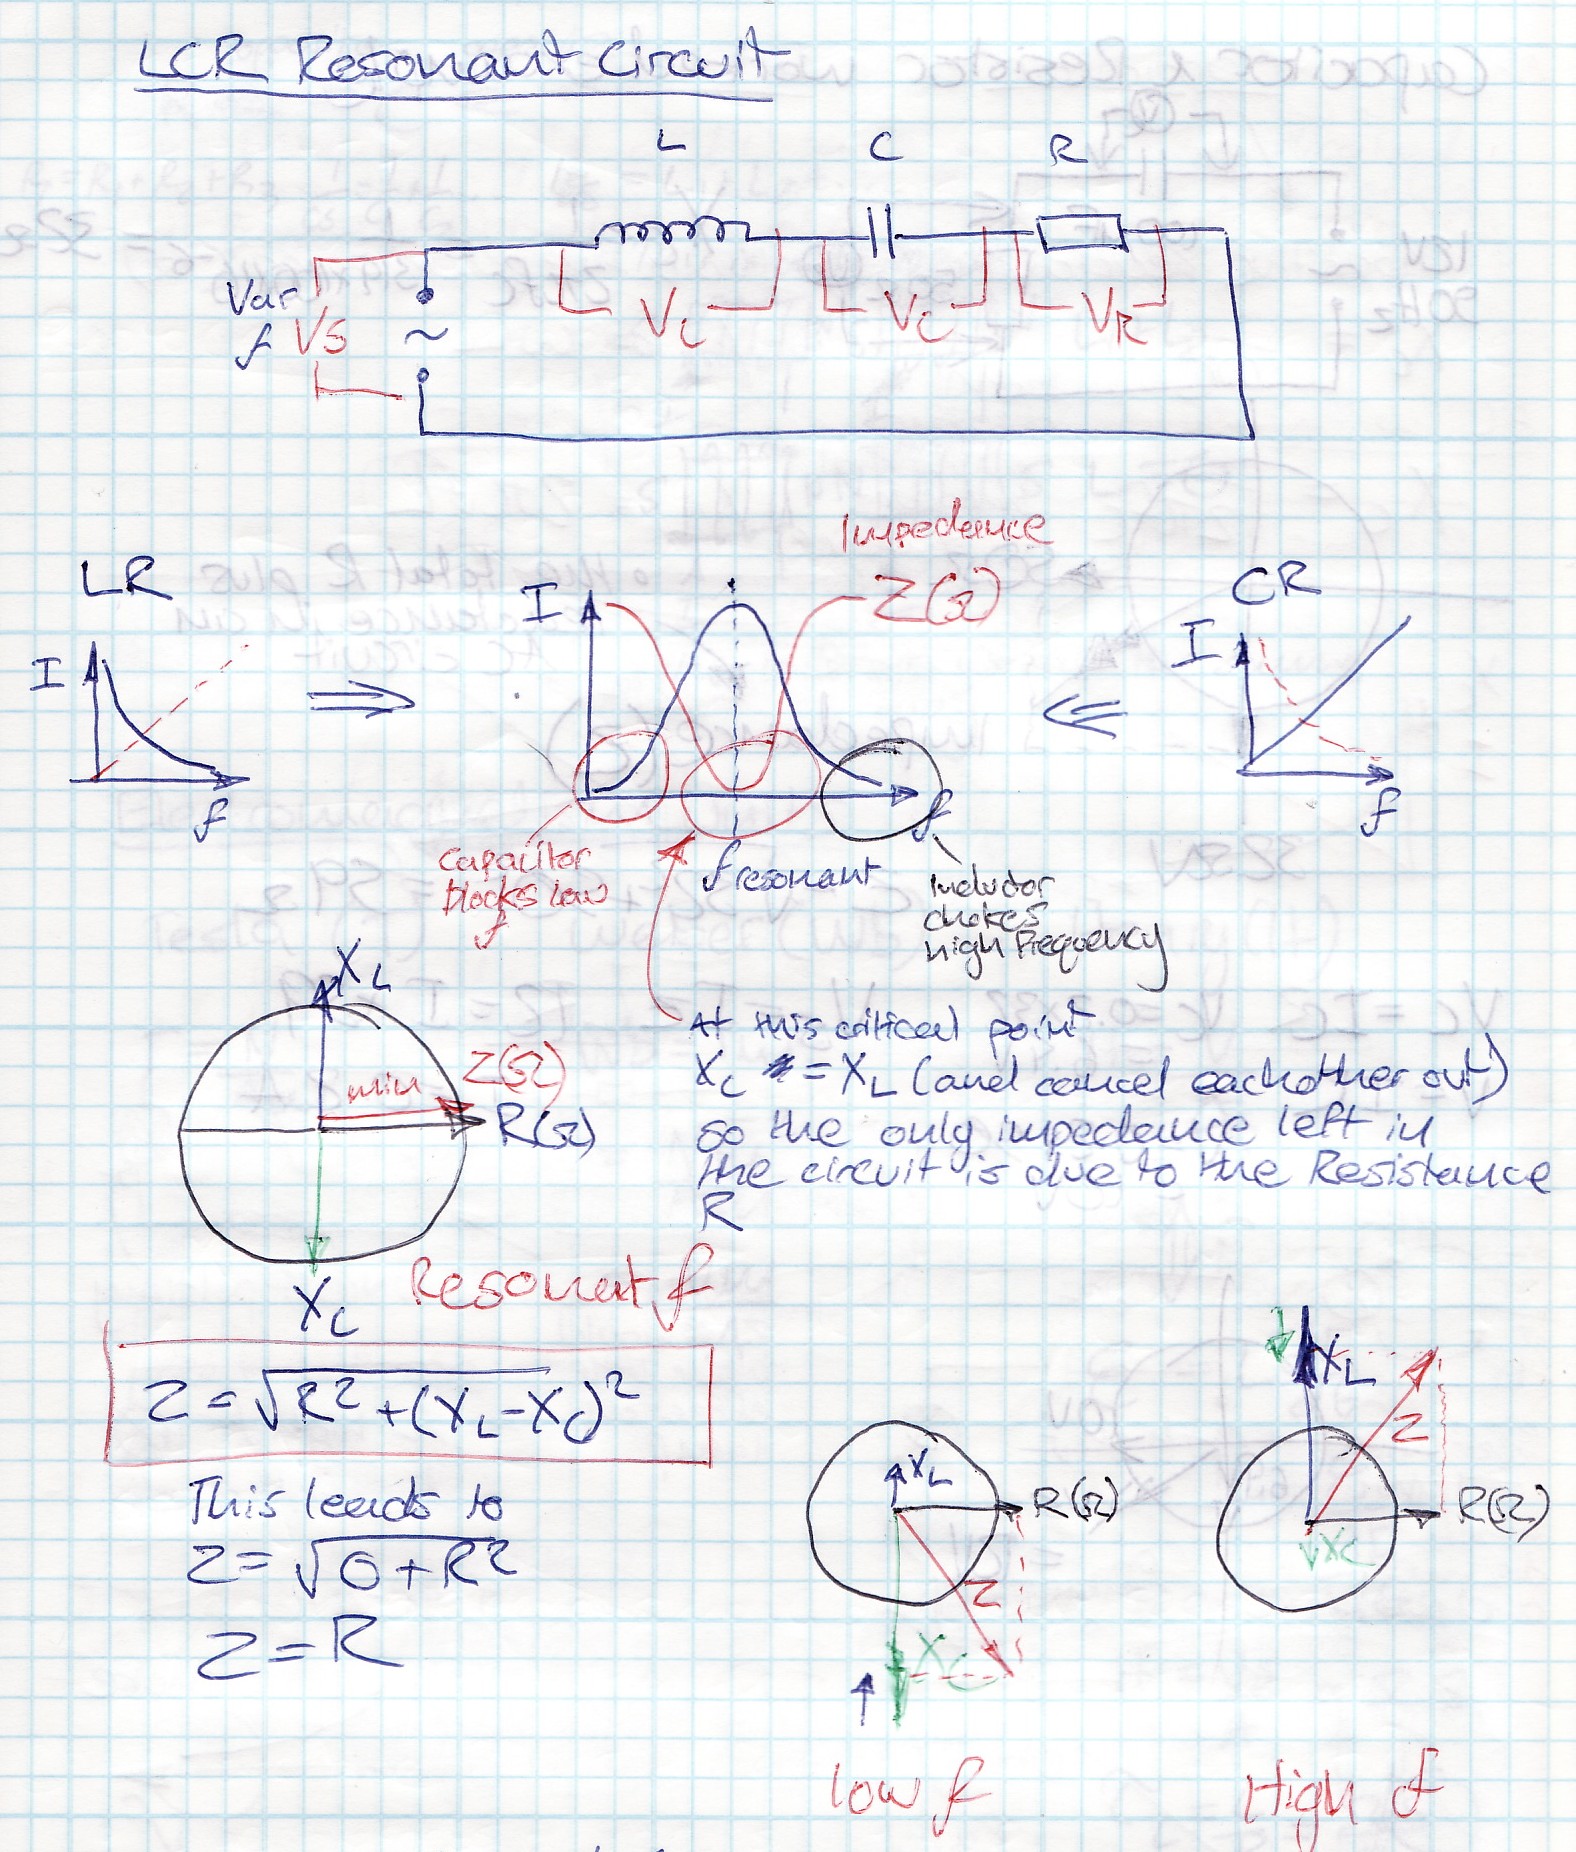 LCR Resonant Circuit
L C R
Var
f
VS
~
VL VC VR
Impedance
Z(Ω)
LR
I
f
I
f
CR
I
f
Capacitor
blocks low
f
fresonant
inductor
chokes
high frequency
XL
min
Z(Ω)
R(Ω)
XC
Resonant f
At this critical point
XC = XL (and cancel eachother out)
so the only impedance left in
the circuit is due to the Resistance
R
Z = √R² + (XL-XC)²
This leads to
Z = √0 + R²
Z = R
XL
R(Ω)
Z
XC
low f
XL
Z
R(Ω)
XC
High f